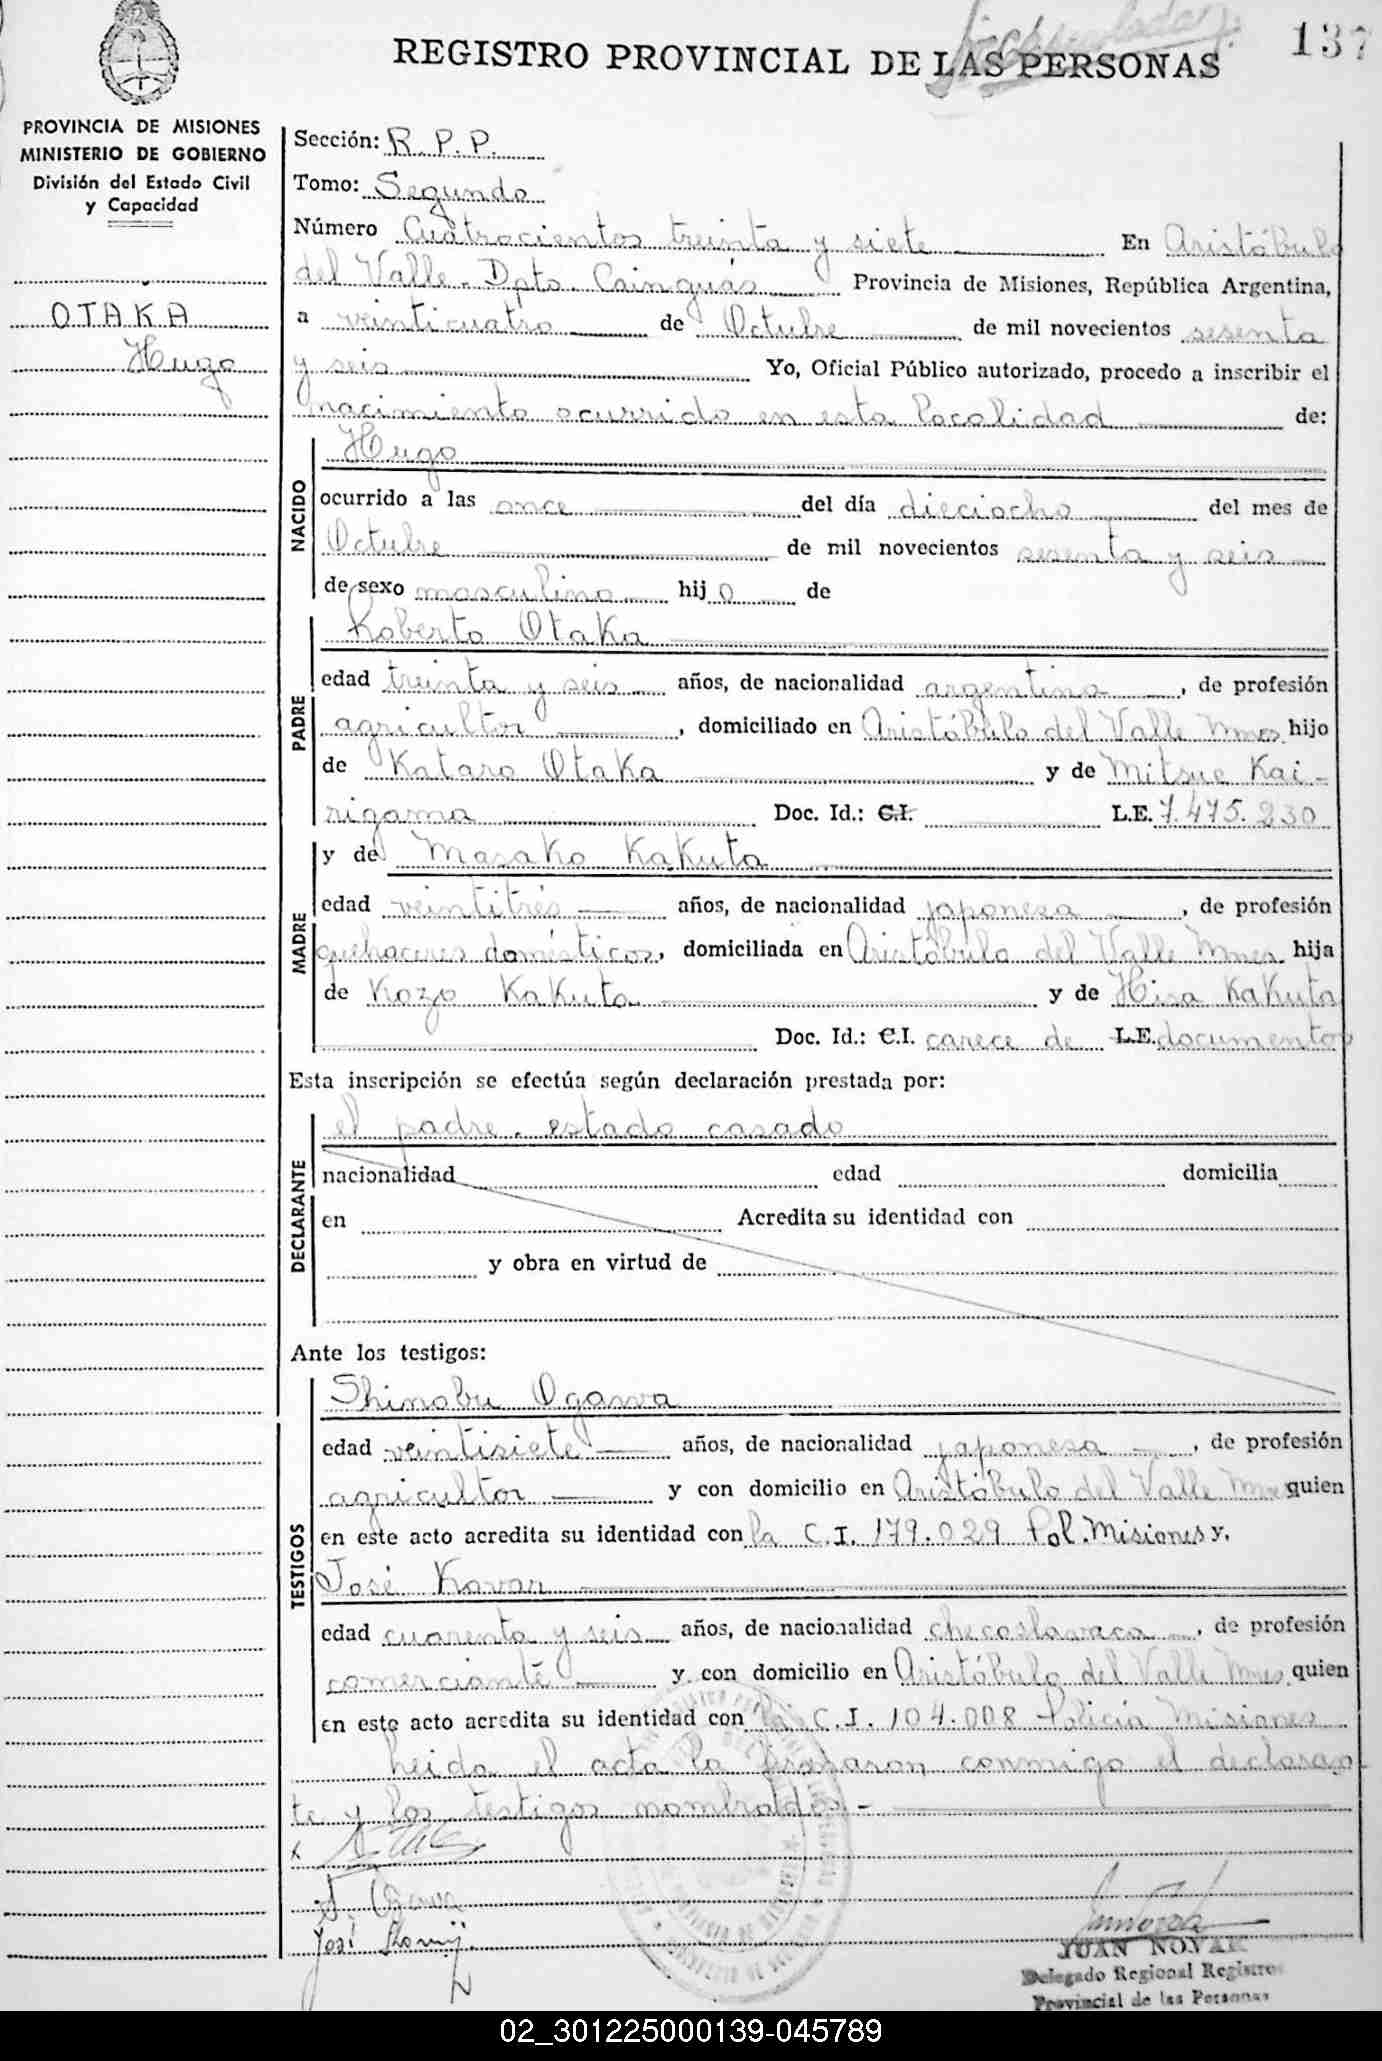 137
REGISTRO PROVINCIAL DE LAS PERSONAS
PROVINCIA DE MISIONES
MINISTERIO DE GOBIERNO
División del Estado Civil
y Capacidad
OTAKA
Hugo
Sección: R. P. P.
Tomo: Segundo
Número Cuatrocientos treinta y siete En Aristóbulo
del Valle. Dpto. Cainguás Provincia de Misiones, República Argentina,
a veinticuatro de Octubre de mil novecientos sesenta
y seis Yo, Oficial Público autorizado, procedo a inscribir el
nacimiento ocurrido en esta localidad de:
NACIDO
Hugo
ocurrido a las once del día dieciocho del mes de
Octubre de mil novecientos sesenta y seis
de sexo masculino hijo de
PADRE
Roberto Otaka
edad treinta y seis años, de nacionalidad argentina, de profesión
agricultor, domiciliado en Aristóbulo del Valle Mnes. hijo
de Kataro Otaka y de Mitsue Kai-
rigama Doc. Id.: C.I. L.E. 7.475.230
MADRE
y de Masako Kakuta
edad veintitrés años, de nacionalidad japonesa, de profesión
quehaceres domésticos, domiciliada en Aristóbulo del Valle Mnes. hija
de Kozo Kakuta y de Hisa Kakuta
Doc. Id.: C.I. carece de L.E. documentos
Esta inscripción se efectúa según declaración prestada por:
DECLARANTE
el padre. estado casado
nacionalidad edad domicilia
en Acredita su identidad con
y obra en virtud de
Ante los testigos:
TESTIGOS
Shinobu Ogawa
edad veintisiete años, de nacionalidad japonesa, de profesión
agricultor y con domicilio en Aristóbulo del Valle Mnes quien
en este acto acredita su identidad con la C.I. 179.029 Pol. Misiones y,
José Kovar
edad cuarenta y seis años, de nacionalidad checoslovaca, de profesión
comerciante y con domicilio en Aristóbulo del Valle Mnes. quien
en este acto acredita su identidad con la C.I. 104.008 Policía Misiones
Leida el acta la firmaron conmigo el declaran-
te y los testigos nombrados.-
JUAN NOVAK
Delegado Regional Registro
Provincial de las Personas
02_301225000139-045789